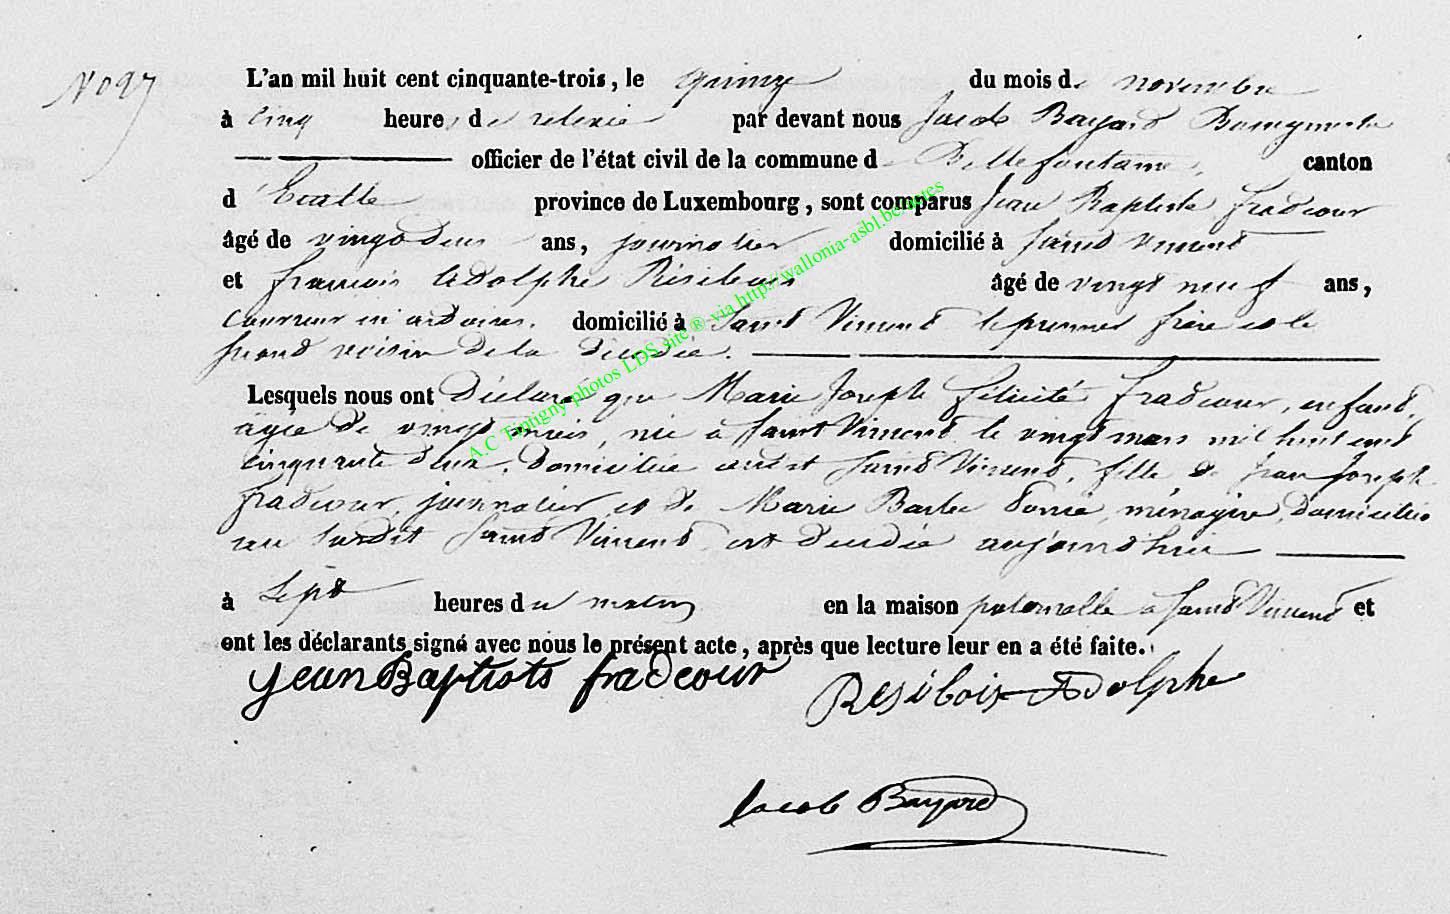 N° 27
L'an mil huit cent cinquante-trois, le quinze du mois de novembre
à cinq heures de relevée par devant nous Jacob Bayard Bourgmestre
officier de l'état civil de la commune de Bellefontaine, canton
d'Etalle province de Luxembourg, sont comparus Jean Baptiste Fradcour
âgé de vingt deux ans, journalier domicilié à Saint Vincent
et francois Adolphe Résibois âgé de vingt neuf ans,
couvreur en ardoises. domicilié à Saint Vincent le premier frère et le
second voisin de la décédée.
Lesquels nous ont Déclaré que Marie Joseph Félicité Fradcour, enfant,
agée de vingt mois, née à Saint Vincent le vingt mars mil huit cent
cinquante deux, domiciliée audit Saint Vincent, fille de Jean Joseph
Fradcour, journalier, et de Marie Barbe ménagère, domiciliés
au susdit Saint Vincent, est décédée aujourd'hui
à Sept heures du matin en la maison paternelle à Saint Vincent et
ont les déclarants signé avec nous le présent acte, après que lecture leur en a été faite.
Jean Baptists fradcour Resibois Adolphe
Jacob Bayard
A.C Tintigny photos LDS site ® via http://wallonia-asbl.be/actes